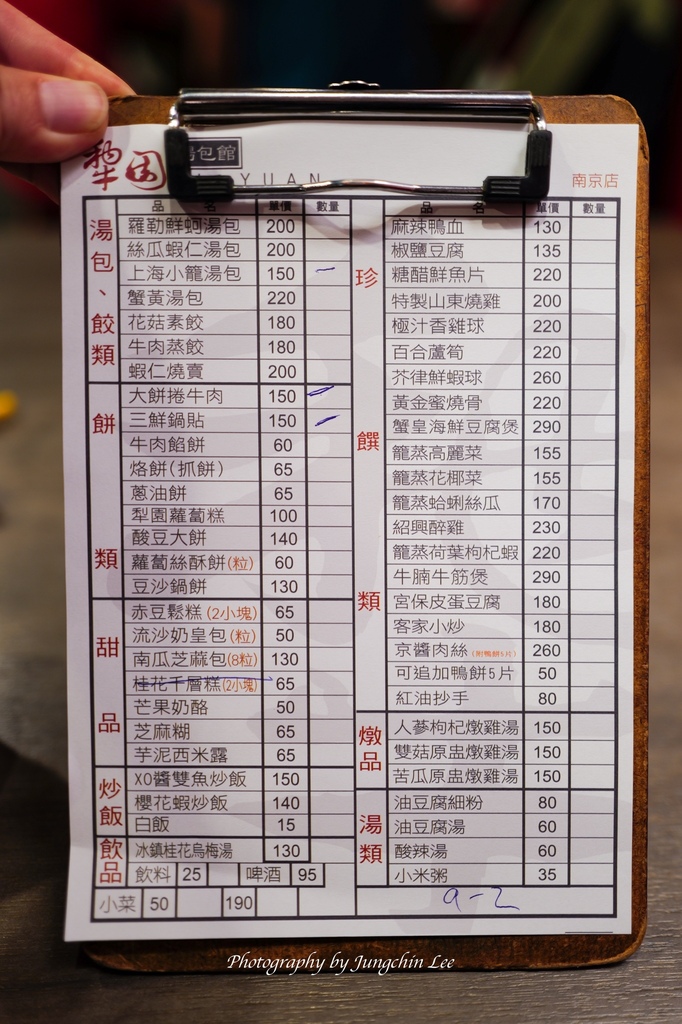 犁园 湯包館
YUAN
南京店
品名 單價 數量
湯包、餃類
羅勒鮮蚵湯包 200
絲瓜蝦仁湯包 200
上海小籠湯包 150
蟹黃湯包 220
花菇素餃 180
牛肉蒸餃 180
蝦仁燒賣 200
餅類
大餅捲牛肉 150
三鮮鍋貼 150
牛肉餡餅 60
烙餅(抓餅) 65
蔥油餅 65
犁園蘿蔔糕 100
酸豆大餅 140
蘿蔔絲酥餅(粒) 60
豆沙鍋餅 130
甜品
赤豆鬆糕(2小塊) 65
流沙奶皇包(粒) 50
南瓜芝蔴包(8粒) 130
桂花千層糕(2小塊) 65
芒果奶酪 50
芝麻糊 65
芋泥西米露 65
炒飯
XO醬雙魚炒飯 150
櫻花蝦炒飯 140
白飯 15
飲品
冰鎮桂花烏梅湯 130
飲料 25 啤酒 95
小菜 50 190
品名 單價 數量
珍饌類
麻辣鴨血 130
椒鹽豆腐 135
糖醋鮮魚片 220
特製山東燒雞 200
極汁香雞球 220
百合蘆筍 220
芥律鮮蝦球 260
黃金蜜燒骨 220
蟹皇海鮮豆腐煲 290
籠蒸高麗菜 155
籠蒸花椰菜 155
籠蒸蛤蜊絲瓜 170
紹興醉雞 230
籠蒸荷葉枸杞蝦 220
牛腩牛筋煲 290
宮保皮蛋豆腐 180
客家小炒 180
京醬肉絲(附鴨餅5片) 260
可追加鴨餅5片 50
紅油抄手 80
燉品
人蔘枸杞燉雞湯 150
雙菇原盅燉雞湯 150
苦瓜原盅燉雞湯 150
湯類
油豆腐細粉 80
油豆腐湯 60
酸辣湯 60
小米粥 35
9-2
Photography by Jungchin Lee